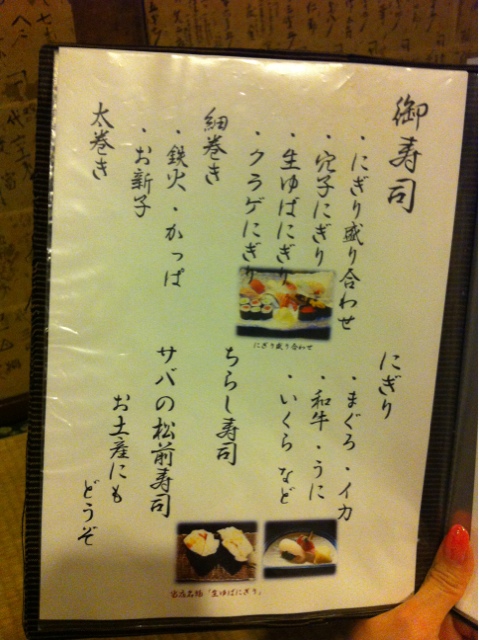 御寿司
・にぎり盛り合わせ
・穴子にぎり
・生ゆばにぎり
・クラゲにぎり
細巻き
・鉄火・かっぱ
・お新子
太巻き
にぎり
・まぐろ・イカ
・和牛・うに
・いくら など
ちらし寿司
サバの松前寿司
お土産にも
どうぞ
にぎり盛り合わせ
当店名物「生ゆばにぎり」